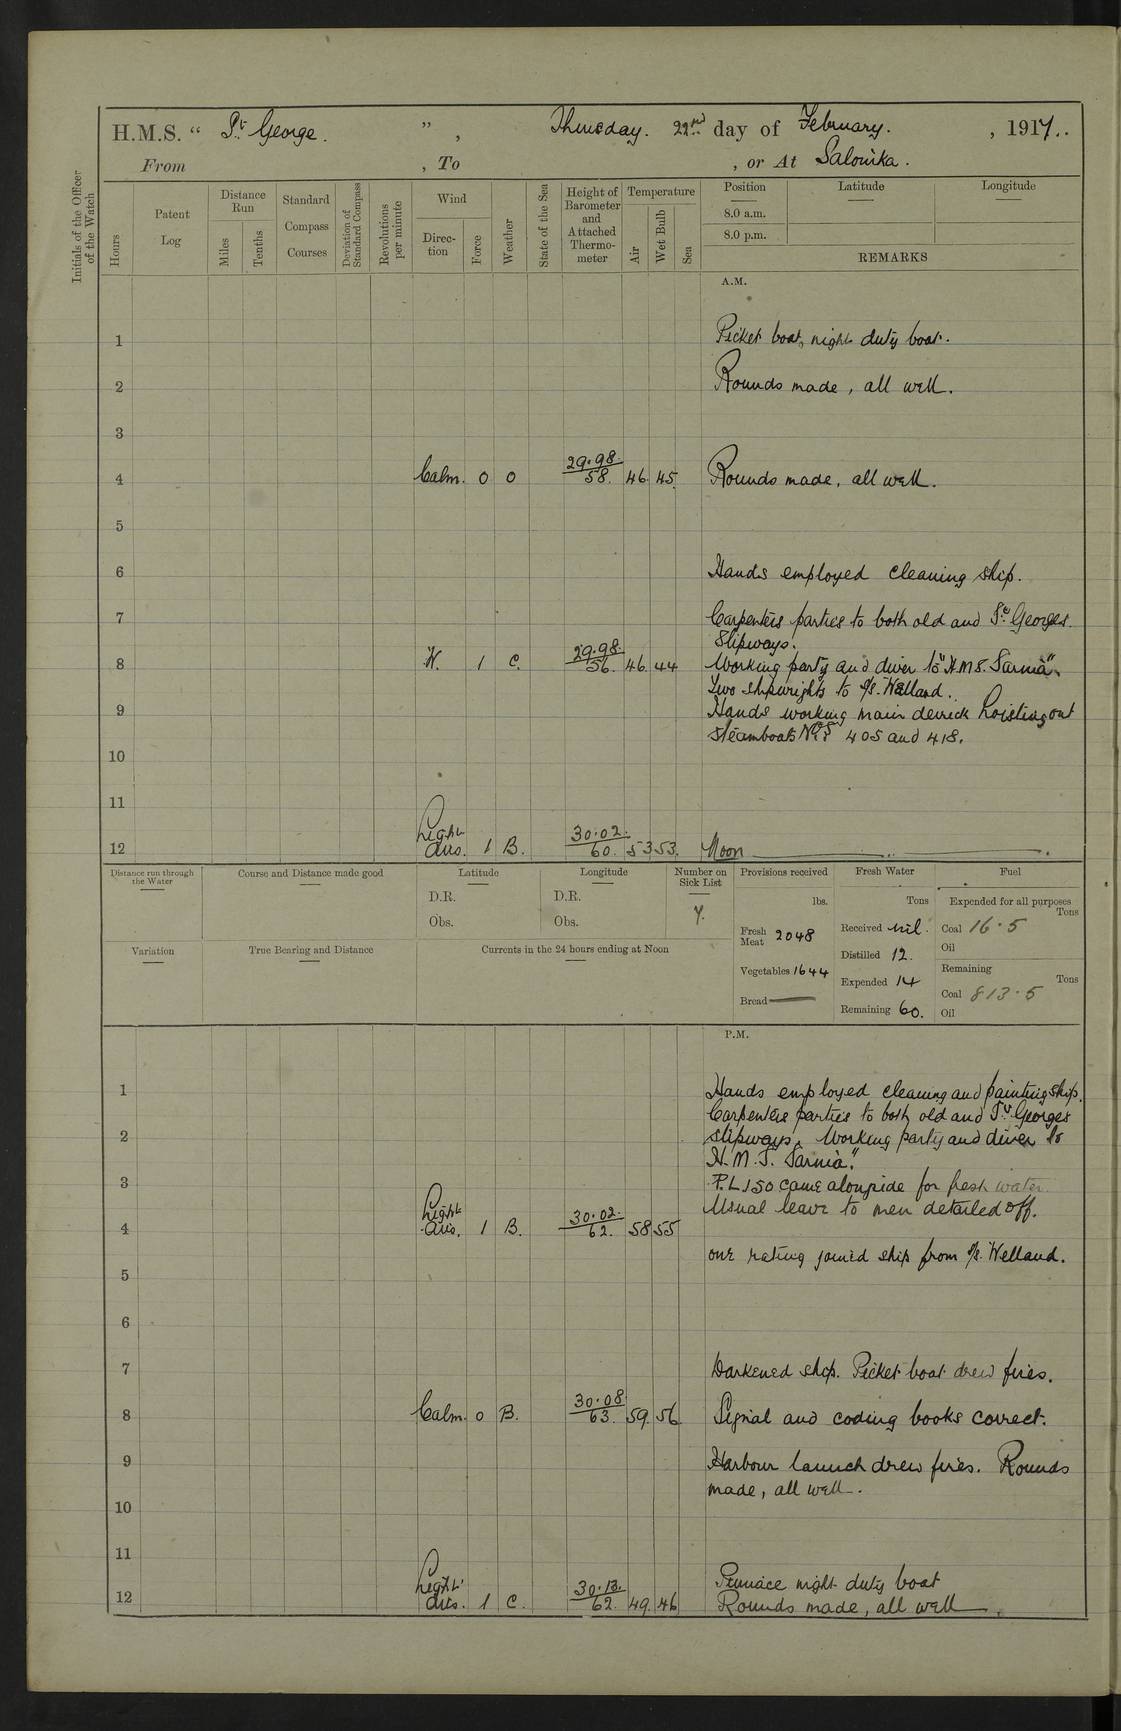 H.M.S. “ St George. ” , Thursday. 22nd day of February. , 1917..
From , To , or At Salonika.
Initials of the Officer of the Watch
Hours
Patent Log
Distance Run
Miles
Tenths
Standard Compass Courses
Deviation of Standard Compass
Revolutions per minute
Wind
Direction
Force
Weather
State of the Sea
Height of Barometer and Attached Thermometer
Temperature
Air
Wet Bulb
Sea
Position Latitude Longitude
8.0 a.m.
8.0 p.m.
REMARKS
A.M.
1 Picket boat, night duty boat.
2 Rounds made, all well.
3
4 Calm. 0 0 29.98. 58. 46. 45. Rounds made, all well.
5
6 Hands employed cleaning ship.
7 Carpenters parties to both old and St Georges.
Slipways.
8 W. 1 C. 29.98. 56. 46. 44 Working party and diver to "H.M.S. Sarnia".
Two shipwrights to s/s. Welland.
9 Hands working main derrick hoisting out
steamboats Nos 405 and 418.
10
11
12 Light airs. 1 B. 30.02. 60. 53 53. Noon
Distance run through the Water
Course and Distance made good
Latitude
D.R.
Obs.
Longitude
D.R.
Obs.
Number on Sick List
7.
Provisions received
lbs.
Fresh Meat 2048
Vegetables 1644
Bread
Fresh Water
Tons
Received nil.
Distilled 12.
Expended 14
Remaining 60.
Fuel
Expended for all purposes
Tons
Coal 16.5
Oil
Remaining
Tons
Coal 813.5
Oil
Variation
True Bearing and Distance
Currents in the 24 hours ending at Noon
P.M.
1 Hands employed cleaning and painting ship.
Carpenters parties to both old and St Georges
2 slipways. Working party and diver to
H.M.S. Sarnia."
3 P.L 150 came alongside for fresh water.
Usual leave to men detailed off.
4 Light airs. 1 B. 30.02. 62. 58 55
one rating joined ship from s/s. Welland.
5
6
7 Darkened ship. Picket boat drew fires.
8 Calm. 0 B. 30.08 63. 59. 56. Signal and coding books correct.
9 Harbour launch drew fires. Rounds
made, all well.
10
11
12 Light airs. 1 C. 30.13. 62. 49. 46 Pinnace night duty boat
Rounds made, all well